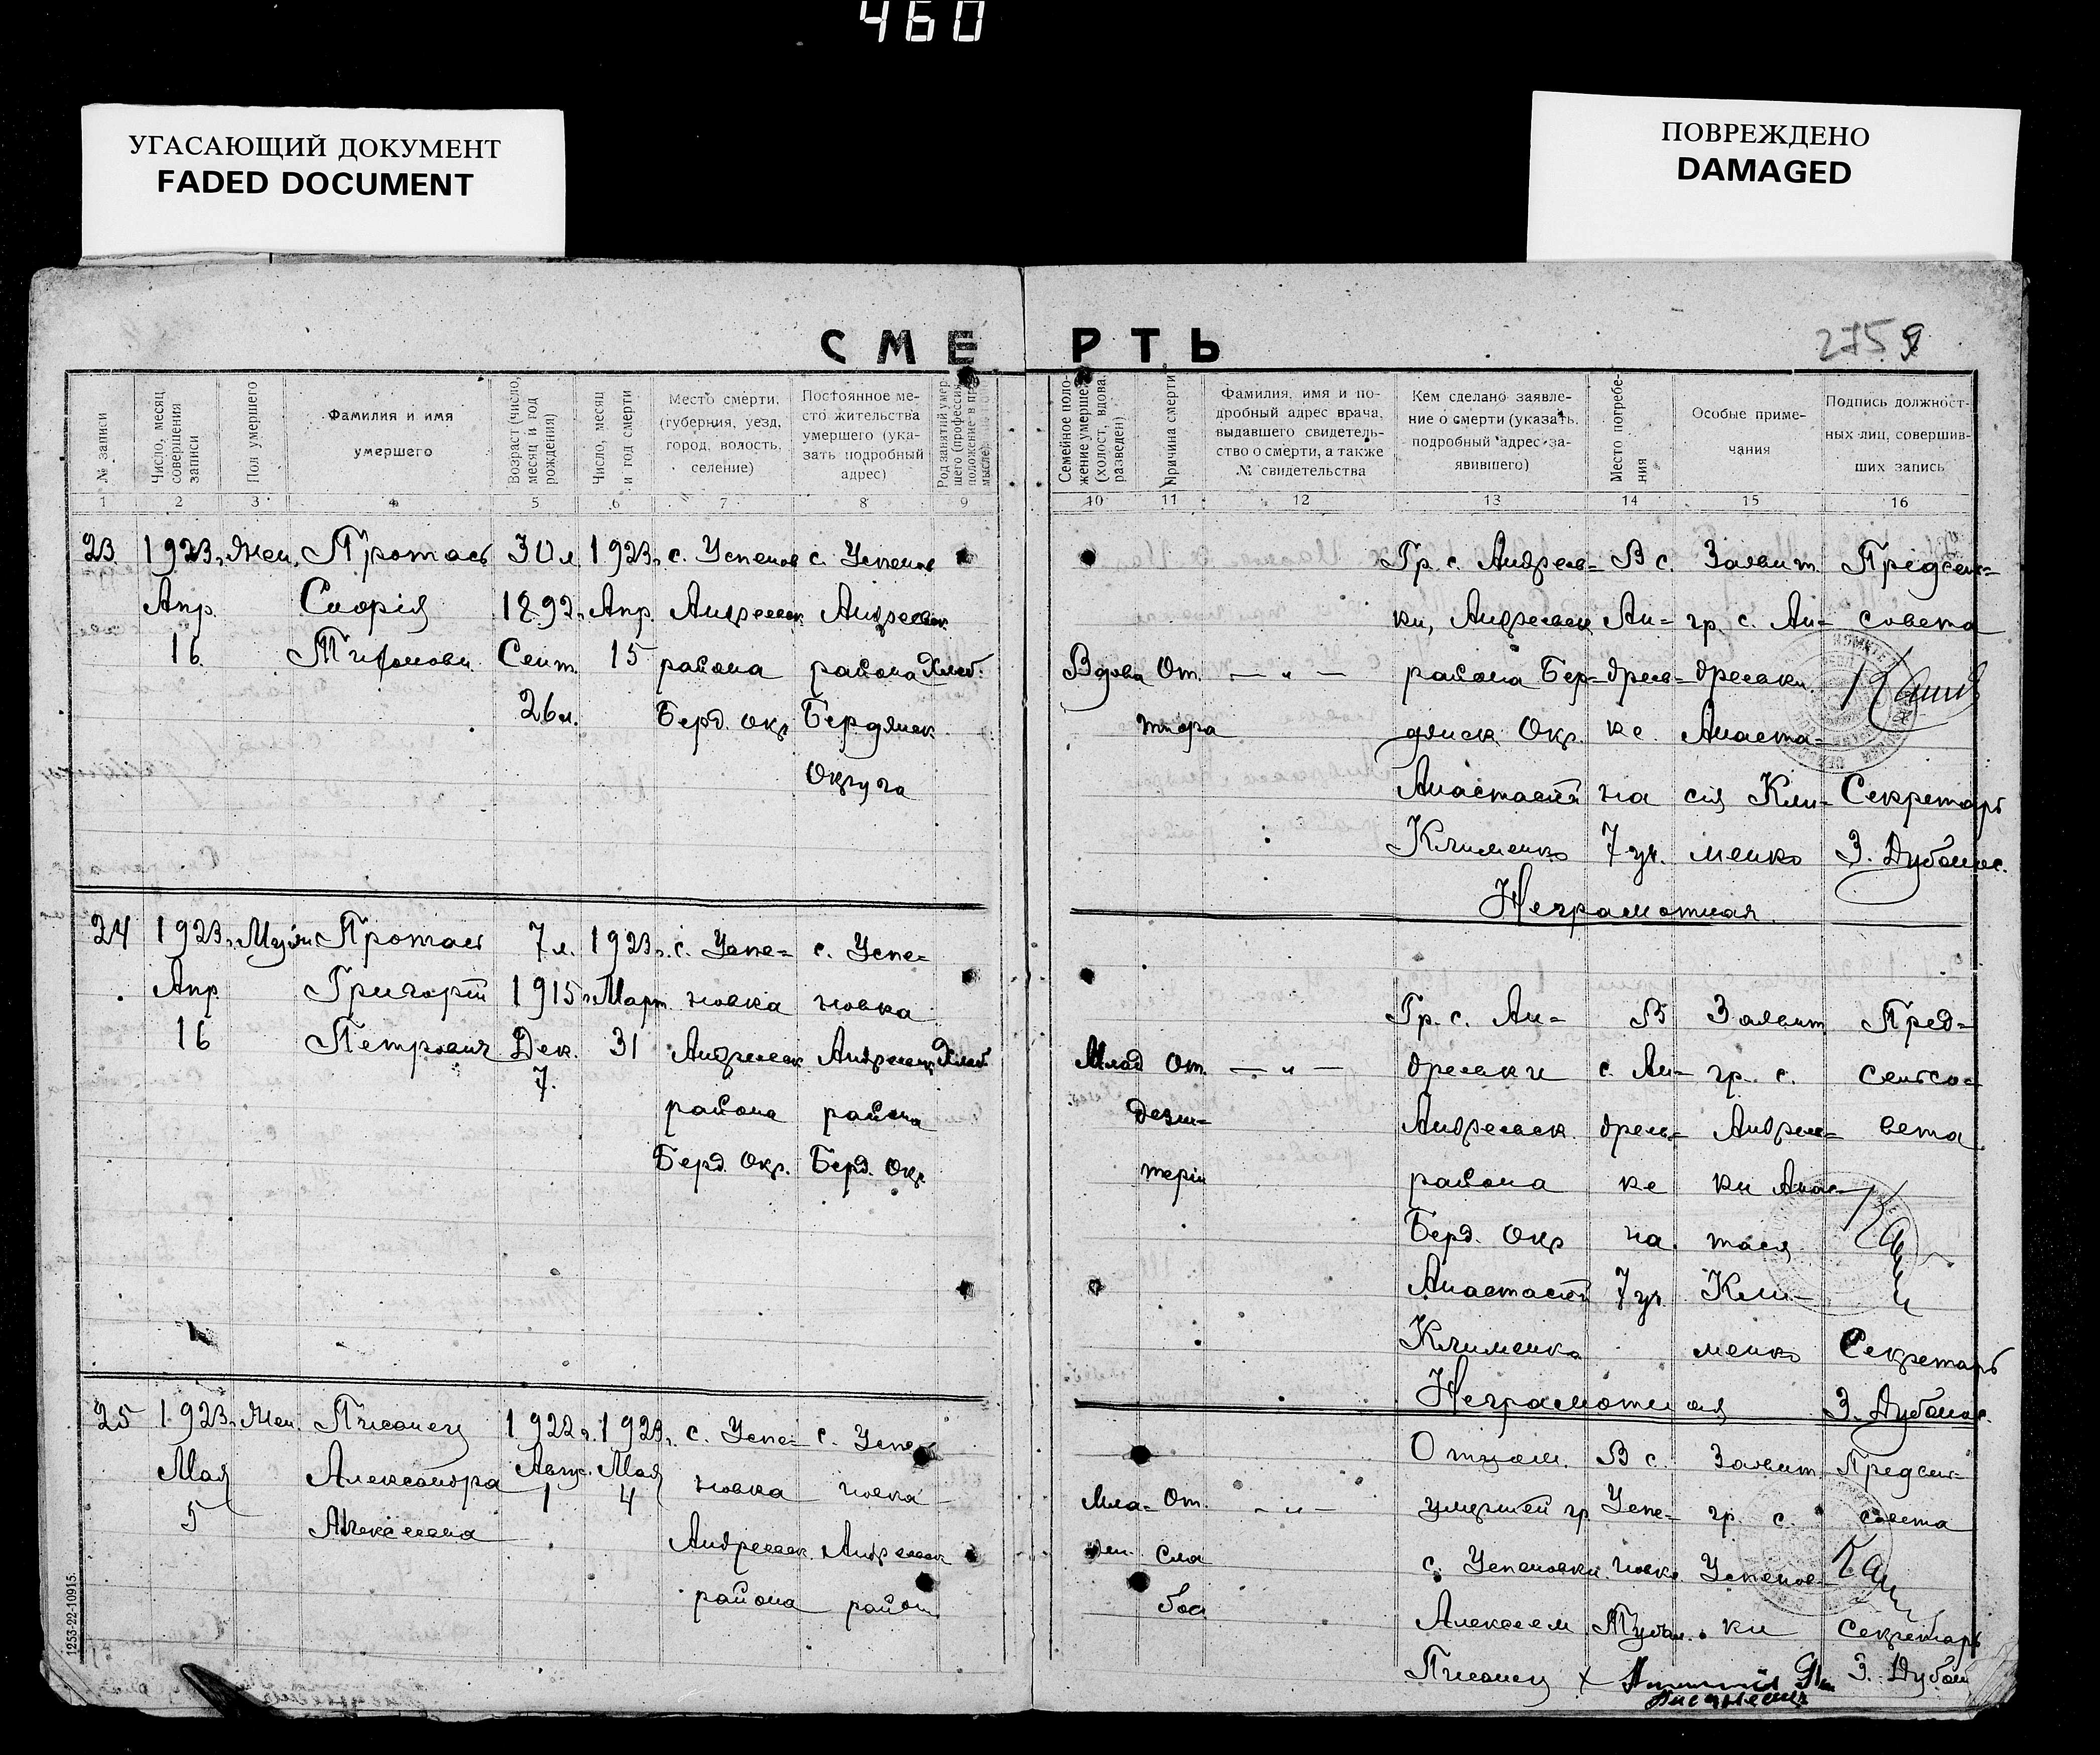 460
УГАСАЮЩИЙ ДОКУМЕНТ
FADED DOCUMENT
ПОВРЕЖДЕНО
DAMAGED
СМЕРТЬ
275
№ записи
Число, месяц совершения записи
Пол умершего
Фамилия и имя
умершего
Возраст (число, месяц и год рождения)
Число, месяц и год смерти
Место смерти,
(губерния, уезд,
город, волость,
селение)
Постоянное ме-
сто жительства
умершего (ука-
зать подробный
адрес)
Род занятий умер-
шего (профессия,
положение в про-
мысле)
Семейное поло-
жение умершего
(холост, вдова,
разведен)
Причина смерти
Фамилия, имя и по-
дробный адрес врача,
выдавшего свидетель-
ство о смерти, а также
№ свидетельства
Кем сделано заявле-
ние о смерти (указать,
подробный адрес за-
явившего)
Место погребе-
ния
Особые приме-
чания
Подпись должност-
ных лиц, совершив-
ших запись
1 2 3 4 5 6 7 8 9 10 11 12 13 14 15 16
23
1923г.
Апр.
16.
Жен.
Протась
Тифоновн.
30 л
1892г.
Сент.
26 ч.
1923г.
Апр.
15
с. Успенов
Андреевск
района
Берд. окр.
с. Успенов
Андреевск.
района
Бердянск.
Округа
Хлеб.
Вдова
От.
— „ —
Гр. с. Андреев-
ки, Андреевск
района Бер-
дянск. Окр.
Анастасией
Клименко
Неграмотная.
В с.
Ан-
дреев-
ке.
на
7 уч.
Заявит.
гр. с. Ан-
дреевки.
Анаста-
сия Кли-
менко
Предсель-
совета
Секретарь
24
1923г.
Апр.
16
Муж
Протась
Григорий
Петрович
7 л.
1915г.
Дек.
7.
1923г.
Март
31
с. Успе-
новка
Андреевск
района
Берд. Окр.
с. Успе-
новка
Андреевск
района
Берд. Окр.
Хлеб
Млад
От.
дезин-
терии
— „ —
Гр. с. Ан-
дреевки
Андреевск.
района
Берд. Окр
Анастасией
Клименко
Неграмотная
В
с. Ан-
дреев-
ке
на.
7 уч.
Заявит.
гр. с.
Андреев-
ки Анас-
тасия
Кли-
менко
Пред-
сельсо-
вета
Секретарь
25
1923г.
Мая
5
Жен.
Писанец
Александра
Алексеевна
1922г.
Авгус.
1
1923г.
Мая
4
с. Успе-
новка
Андреевск.
района
с. Успе-
новка
Андреевск
район
Мла-
ден.
От.
сла
бос
— „ —
Отцом.
умершей гр
с. Успеновки.
Алексеем
Писанец
В с.
Успе-
новке
Заявит.
гр. с.
Успенов-
ки
Предсель-
совета
Секретарь
1253-22-10915.